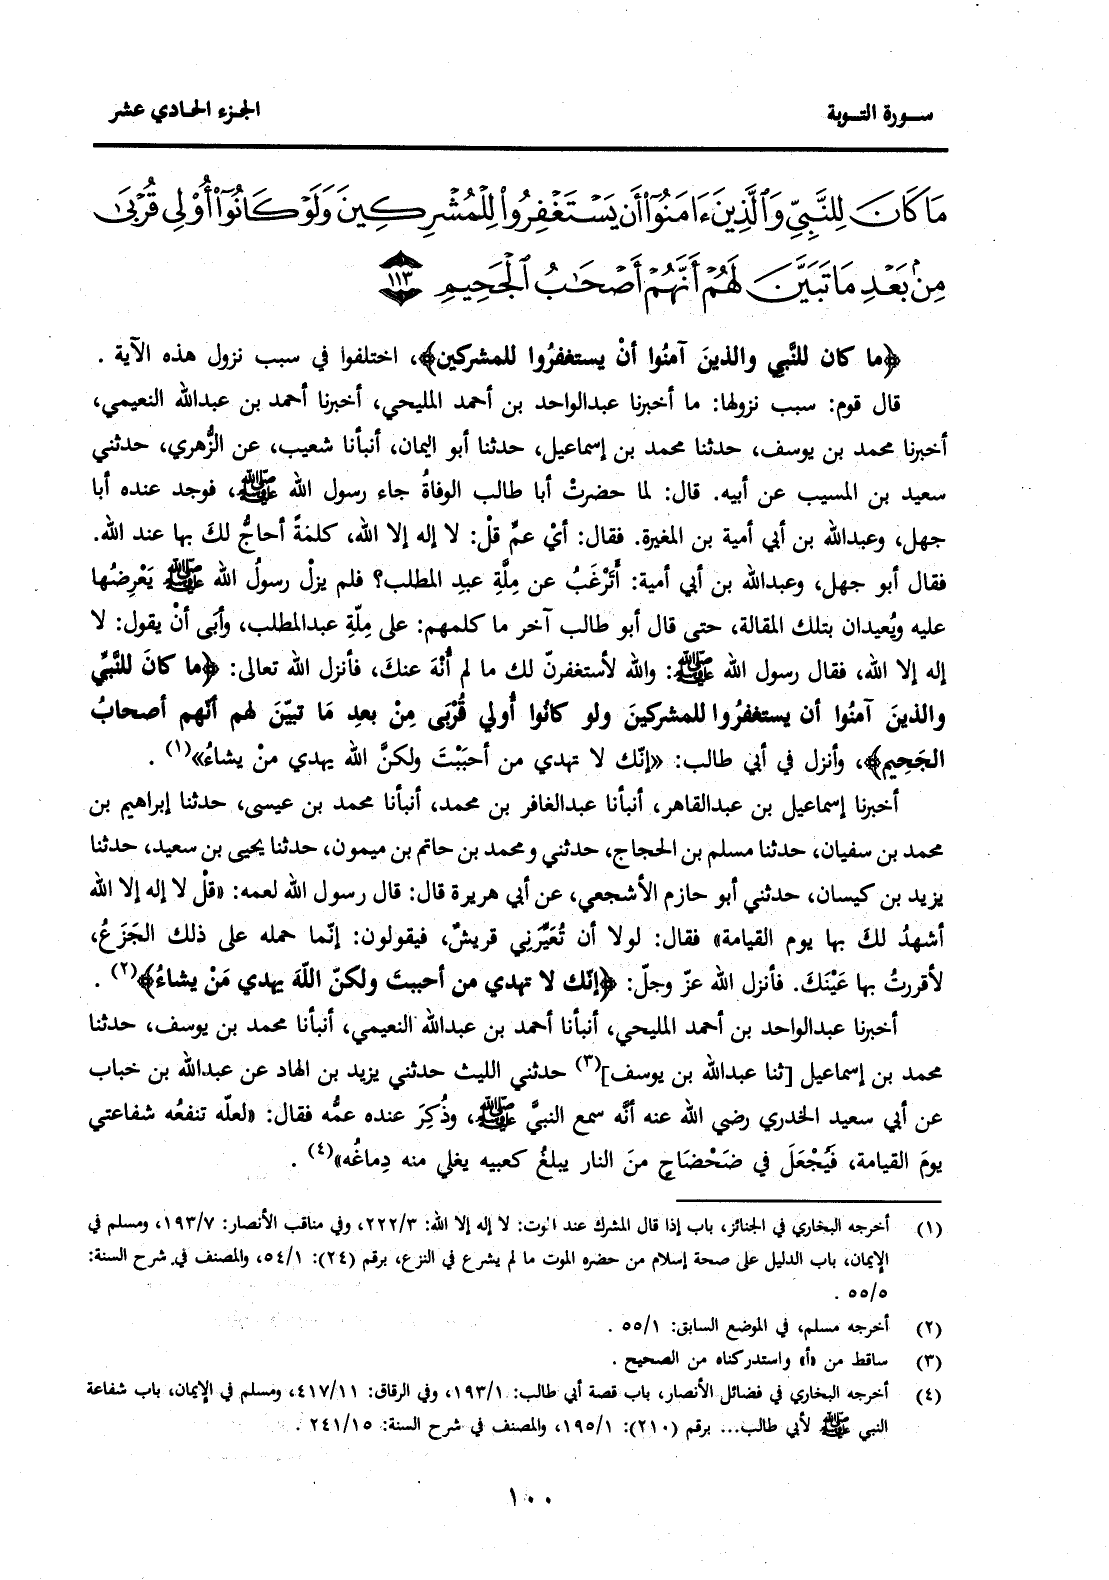 سورة التوبة
الجزء الحادي عشر
مَا كَانَ لِلنَّبِيِّ وَٱلَّذِينَ ءَامَنُوٓا۟ أَن يَسْتَغْفِرُوا۟ لِلْمُشْرِكِينَ وَلَوْ كَانُوٓا۟ أُو۟لِى قُرْبَىٰ
مِنۢ بَعْدِ مَا تَبَيَّنَ لَهُمْ أَنَّهُمْ أَصْحَـٰبُ ٱلْجَحِيمِ ١١٣
﴿ما كان للنَّبي والذينَ آمنُوا أنْ يستغفرُوا للمشركين﴾، اختلفوا في سبب نزول هذه الآية .
قال قوم: سبب نزولها: ما أخبرنا عبدالواحد بن أحمد المليحي، أخبرنا أحمد بن عبدالله النعيمي،
أخبرنا محمد بن يوسف، حدثنا محمد بن إسماعيل، حدثنا أبو اليمان، أنبأنا شعيب، عن الزُّهري، حدثني
سعيد بن المسيب عن أبيه. قال: لما حضرتْ أبا طالب الوفاةُ جاء رسول الله ﷺ، فوجد عنده أبا
جهل، وعبدالله بن أبي أمية بن المغيرة. فقال: أيْ عمِّ قلْ: لا إله إلا الله، كلمةً أحاجُّ لكَ بها عند الله.
فقال أبو جهل، وعبدالله بن أبي أمية: أَتَرْغَبُ عن مِلَّةِ عبدِ المطلب؟ فلم يزلْ رسولُ الله ﷺ يَعْرِضُها
عليه ويُعيدان بتلك المقالة، حتى قال أبو طالب آخر ما كلمهم: على مِلّةِ عبدالمطلب، وأبَى أنْ يقول: لا
إله إلا الله، فقال رسول الله ﷺ: والله لأستغفرنّ لك ما لم أُنْهَ عنكَ، فأنزل الله تعالى: ﴿ما كانَ للنَّبيِّ
والذينَ آمنُوا أن يستغفرُوا للمشركينَ ولو كانُوا أُولي قُرْبَى مِنْ بعدِ مَا تبيّنَ لهم أنّهم أصحابُ
الجَحِيم﴾، وأنزل في أبي طالب: «إنّك لا تهدي من أحبَبْتَ ولكنَّ الله يهدي منْ يشاءُ»(١) .
أخبرنا إسماعيل بن عبدالقاهر، أنبأنا عبدالغافر بن محمد، أنبأنا محمد بن عيسى، حدثنا إبراهيم بن
محمد بن سفيان، حدثنا مسلم بن الحجاج، حدثني ومحمد بن حاتم بن ميمون، حدثنا يحيى بن سعيد، حدثنا
يزيد بن كيسان، حدثني أبو حازم الأشجعي، عن أبي هريرة قال: قال رسول الله لعمه: «قلْ لا إله إلا الله
أشهدُ لكَ بها يوم القيامة» فقال: لولا أن تُعَيِّرَنِي قريشٌ، فيقولون: إنّما حمله على ذلك الجَزَعُ،
لأقررتُ بها عَيْنَكَ. فأنزل الله عزّ وجلّ: ﴿إنّك لا تهدي من أحببتَ ولكنّ اللّهَ يهدي مَنْ يشاءُ﴾(٢) .
أخبرنا عبدالواحد بن أحمد المليحي، أنبأنا أحمد بن عبدالله النعيمي، أنبأنا محمد بن يوسف، حدثنا
محمد بن إسماعيل [ثنا عبدالله بن يوسف](٣) حدثني الليث حدثني يزيد بن الهاد عن عبدالله بن خباب
عن أبي سعيد الخدري رضي الله عنه أنَّه سمع النبيَّ ﷺ، وذُكِرَ عنده عمُّه فقال: «لعلّه تنفعُه شفاعتي
يومَ القيامة، فَيُجْعَلَ في ضَحْضَاحٍ منَ النار يبلغُ كعبيه يغلي منه دِماغُه»(٤) .
(١) أخرجه البخاري في الجنائز، باب إذا قال المشرك عند الموت: لا إله إلا الله: ٢٢٢/٣، وفي مناقب الأنصار: ١٩٣/٧، ومسلم في
الإيمان، باب الدليل على صحة إسلام من حضره الموت ما لم يشرع في النزع، برقم (٢٤): ٥٤/١، والمصنف في شرح السنة:
٥٥/٥ .
(٢) أخرجه مسلم، في الموضع السابق: ٥٥/١ .
(٣) ساقط من «أ» واستدركناه من الصحيح .
(٤) أخرجه البخاري في فضائل الأنصار، باب قصة أبي طالب: ١٩٣/١، وفي الرقاق: ٤١٧/١١، ومسلم في الإيمان، باب شفاعة
النبي ﷺ لأبي طالب... برقم (٢١٠): ١٩٥/١، والمصنف في شرح السنة: ٢٤١/١٥ .
١٠٠